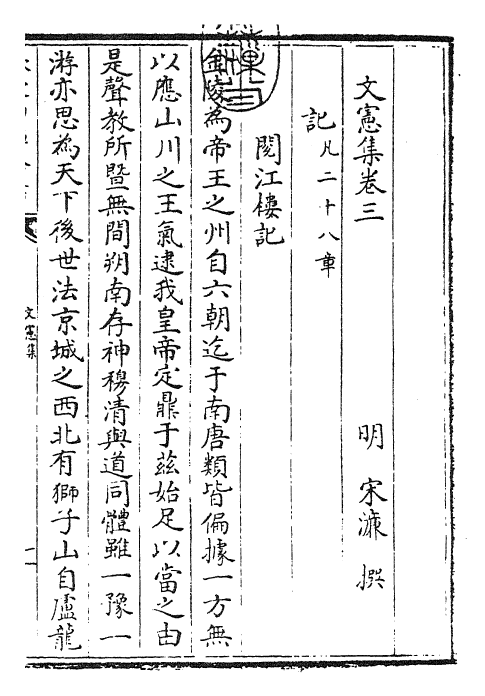 文憲集卷三
明 宋濂 撰
記凡二十八章
閱江樓記
金陵為帝王之州自六朝迄于南唐類皆偏據一方無
以應山川之王氣逮我皇帝定鼎于茲始足以當之由
是聲教所暨無間朔南存神穆清與道同體雖一豫一
游亦思為天下後世法京城之西北有獅子山自盧龍
文憲集
一